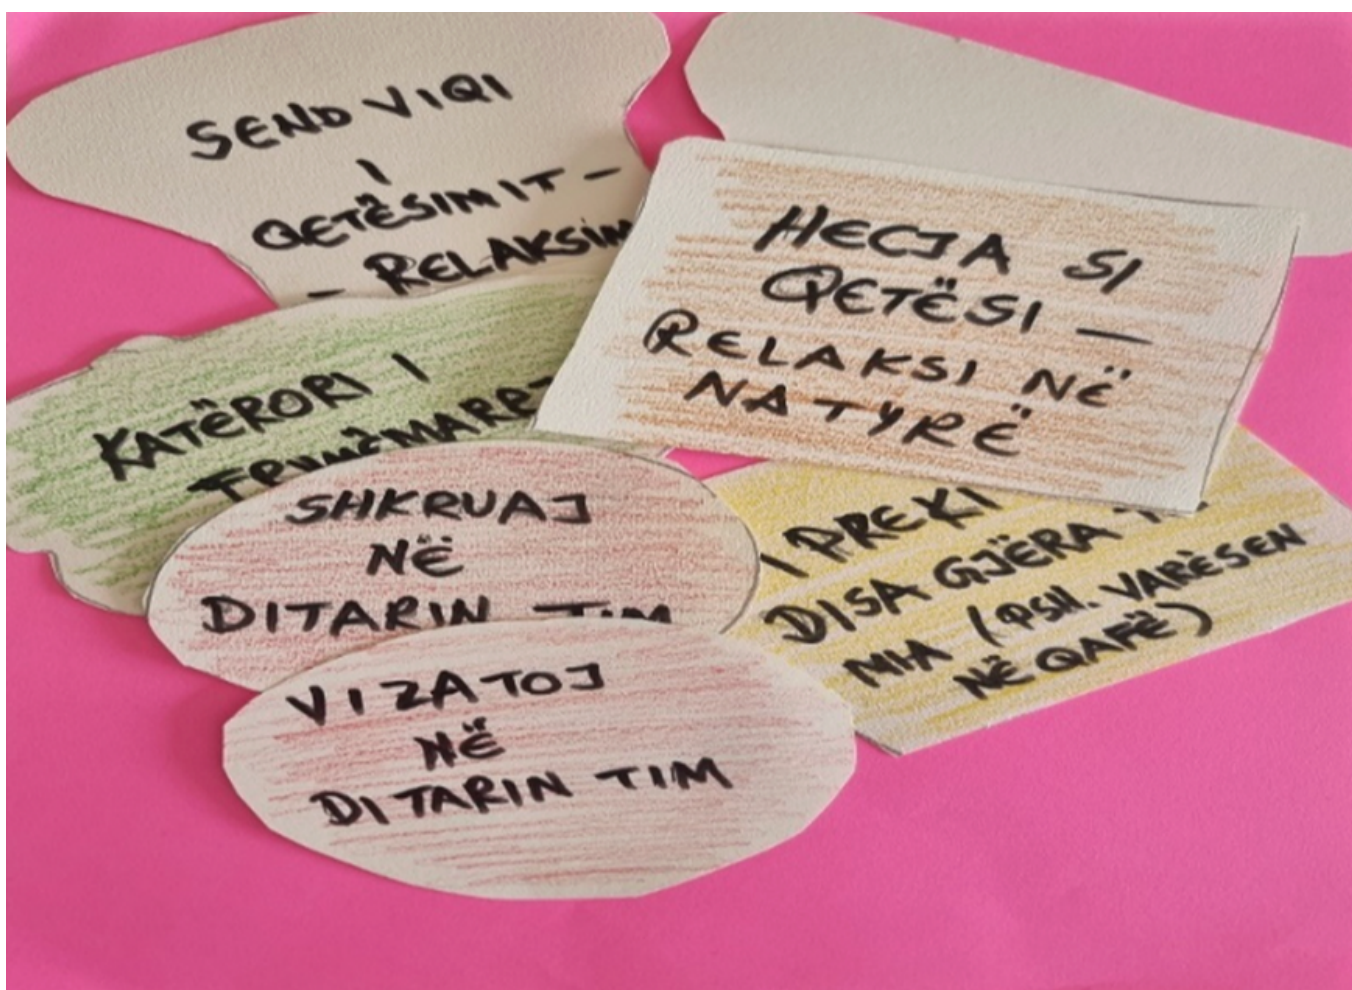 SENDVIQI
I
QETËSIMIT -
- RELAKSIM
HECJA SI
QETËSI —
RELAKSI NË
NATYRË
KATËRORI I
SHKRUAJ
NË
DITARIN TIM
I PREKI
DISA GJËRA
MIA (PSH. VARËSEN
NË QAFË)
VIZATOJ
NË
DITARIN TIM